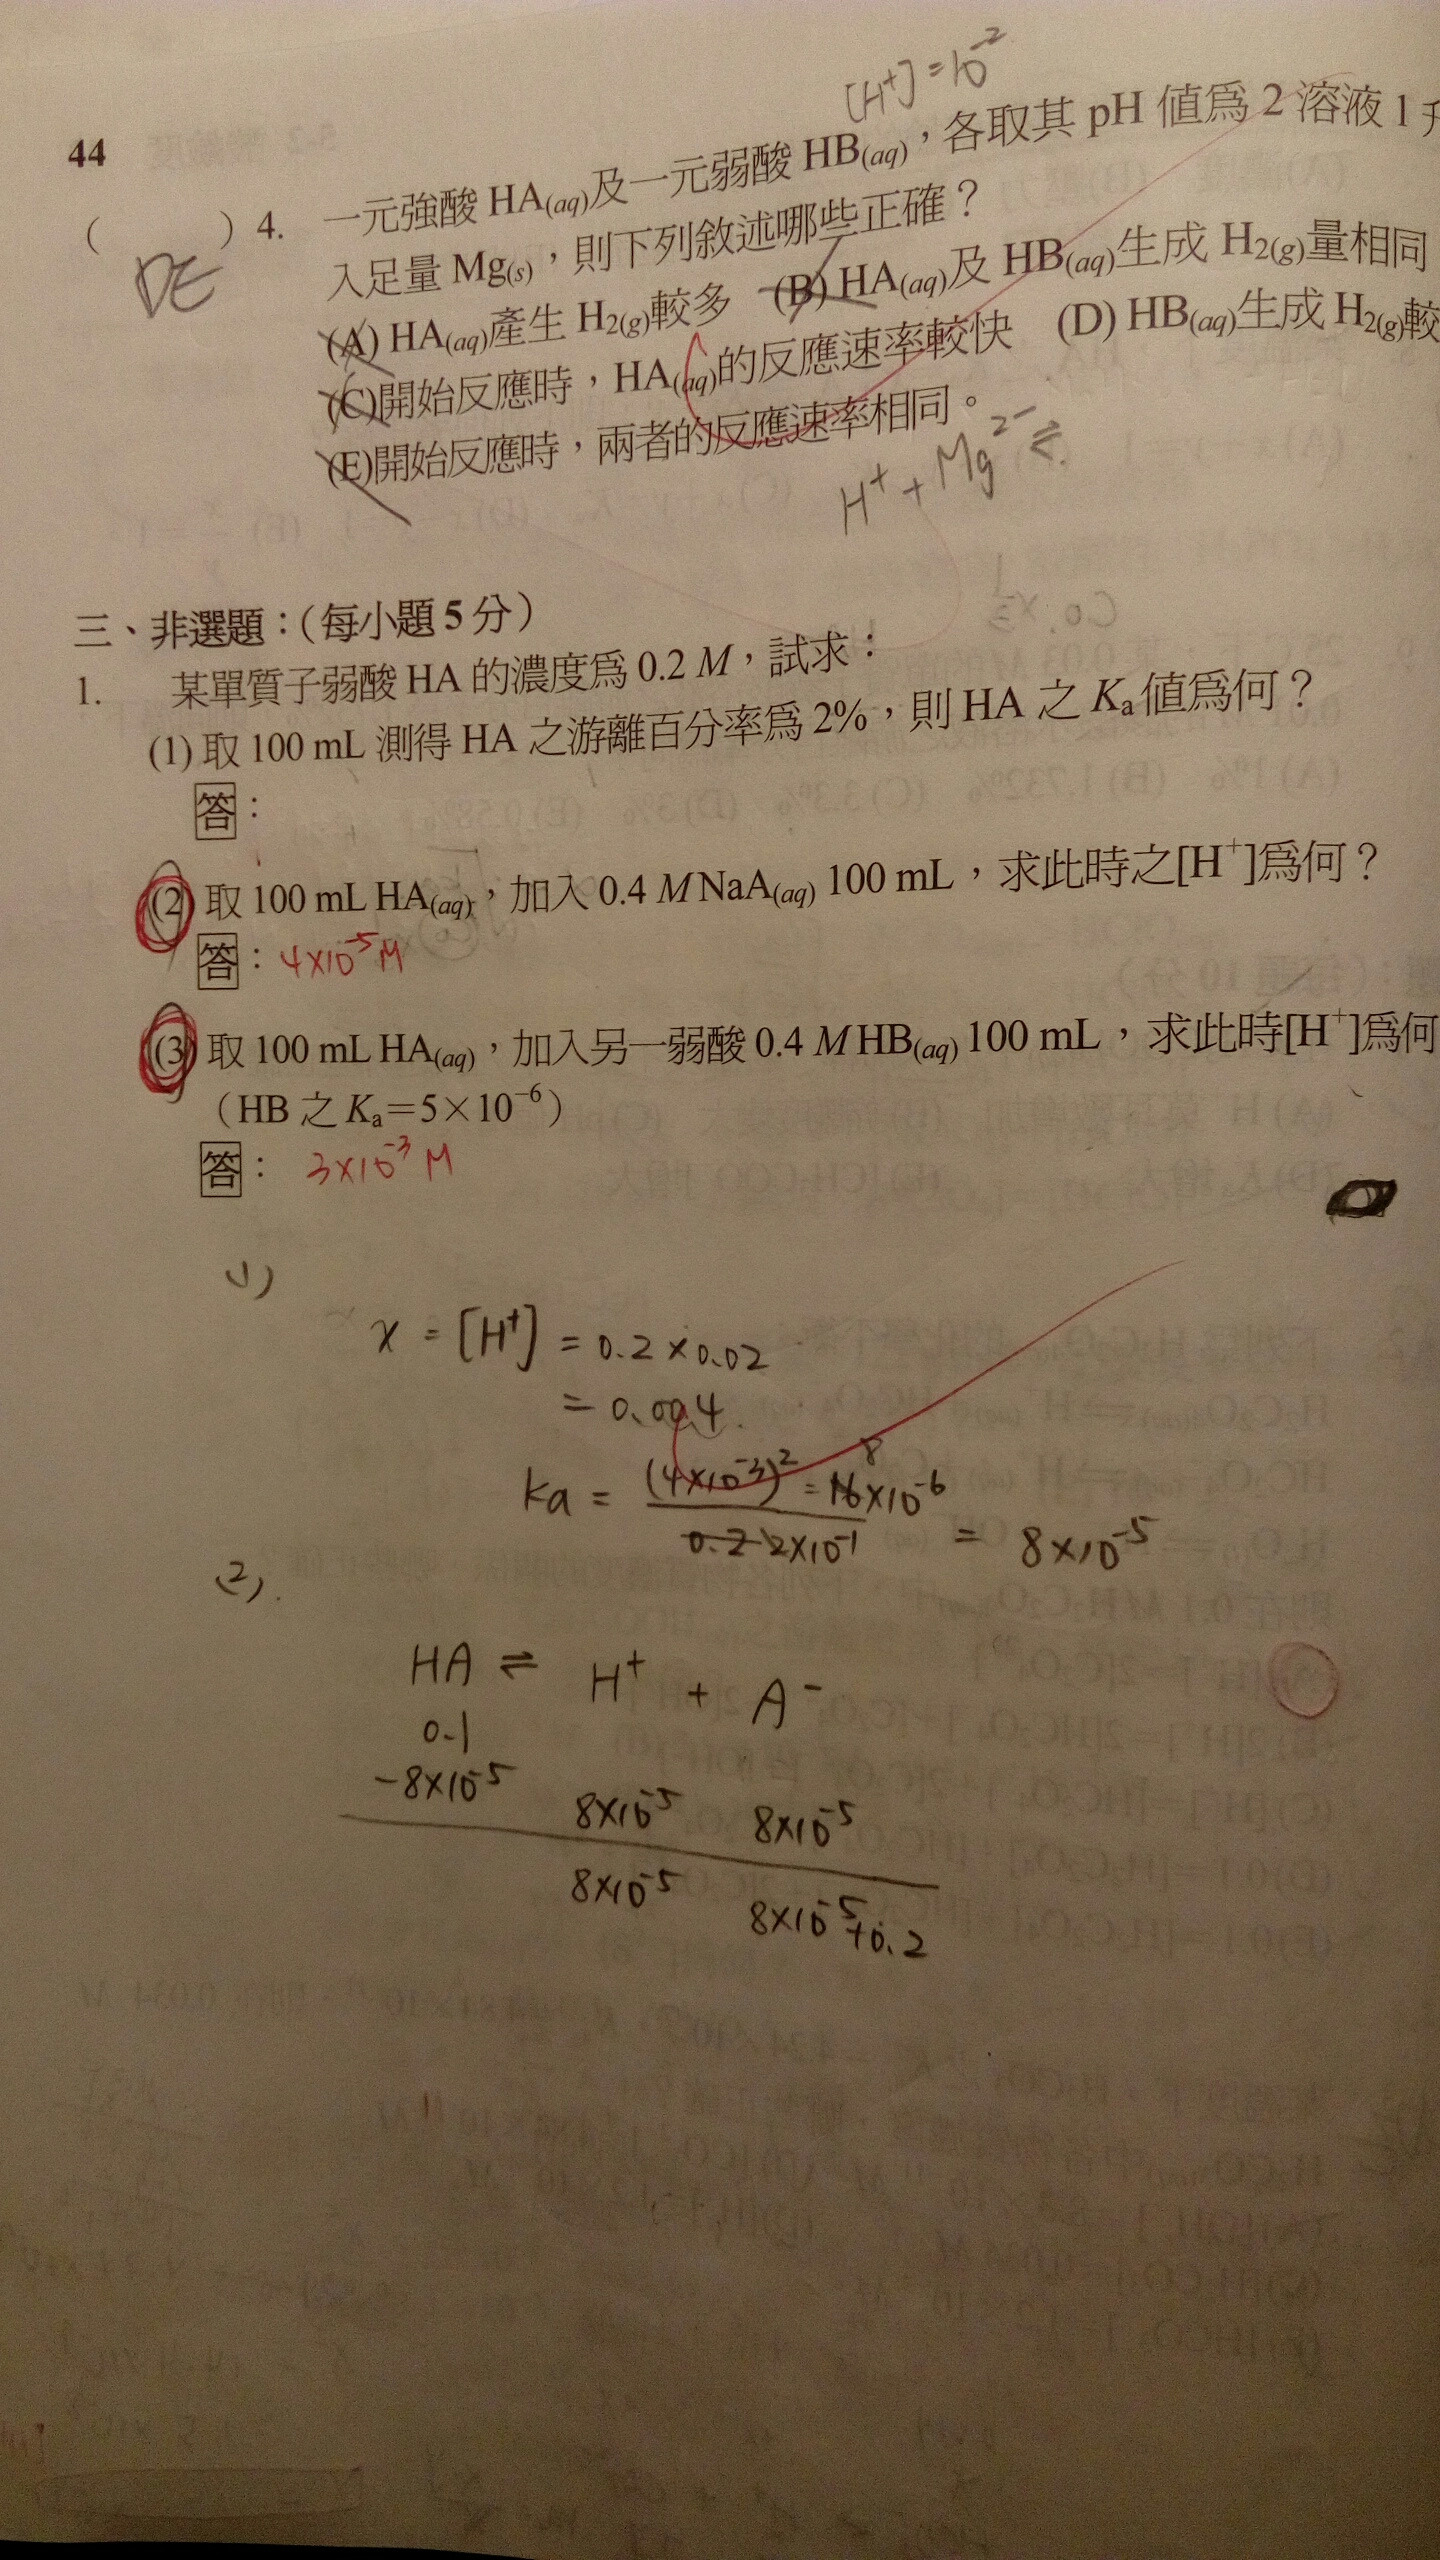 [H⁺]=10⁻²
44
( ) 4. 一元強酸 HA(aq)及一元弱酸 HB(aq)，各取其 pH 值為 2 溶液 1 升
DE
入足量 Mg(s)，則下列敘述哪些正確？
(A) HA(aq)產生 H₂(g)較多 (B) HA(aq)及 HB(aq)生成 H₂(g)量相同
(C)開始反應時，HA(aq)的反應速率較快 (D) HB(aq)生成 H₂(g)較
(E)開始反應時，兩者的反應速率相同。
H⁺ + Mg²⁻ ⇌
三、非選題：(每小題 5 分)
1. 某單質子弱酸 HA 的濃度為 0.2 M，試求：
(1) 取 100 mL 測得 HA 之游離百分率為 2%，則 HA 之 Ka 值為何？
答：
(2) 取 100 mL HA(aq)，加入 0.4 M NaA(aq) 100 mL，求此時之[H⁺]為何？
答：4×10⁻⁵M
(3) 取 100 mL HA(aq)，加入另一弱酸 0.4 M HB(aq) 100 mL，求此時[H⁺]為何
（HB 之 Ka＝5×10⁻⁶）
答：3×10⁻³ M
(1)
x = [H⁺] = 0.2 × 0.02
= 0.004
8
ka = (4×10⁻³)² = 16×10⁻⁶
0.2 2×10⁻¹ = 8×10⁻⁵
(2).
HA ⇌ H⁺ + A⁻
0.1
-8×10⁻⁵ 8×10⁻⁵ 8×10⁻⁵
8×10⁻⁵ 8×10⁻⁵+0.2